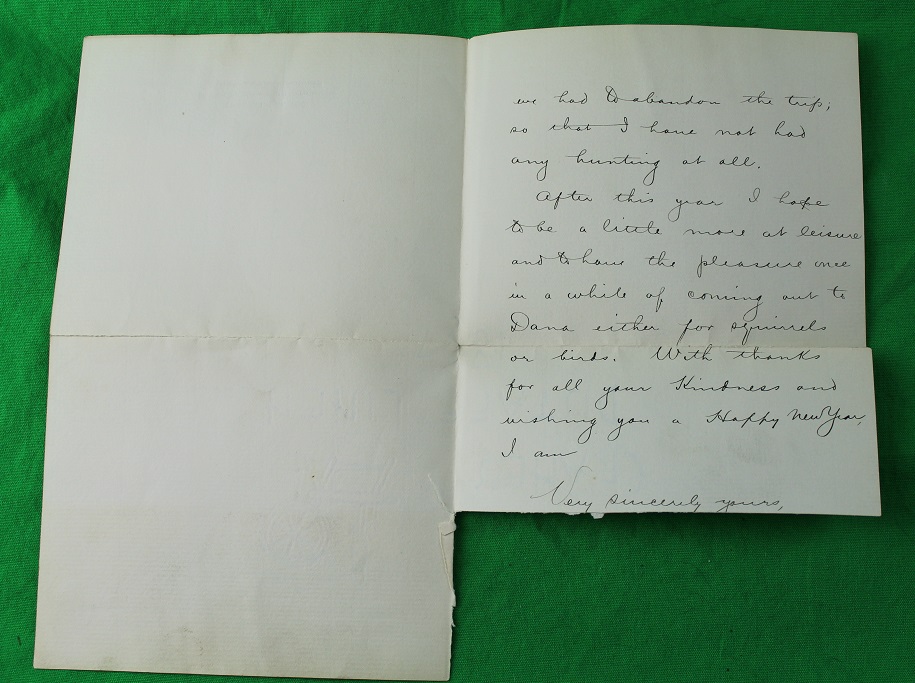 we had to abandon the trip;
so that I have not had
any hunting at all.
After this year I hope
to be a little more at leisure
and to have the pleasure once
in a while of coming out to
Dana either for squirrels
or birds. With thanks
for all your Kindness and
wishing you a Happy New Year,
I am
Very sincerely yours,